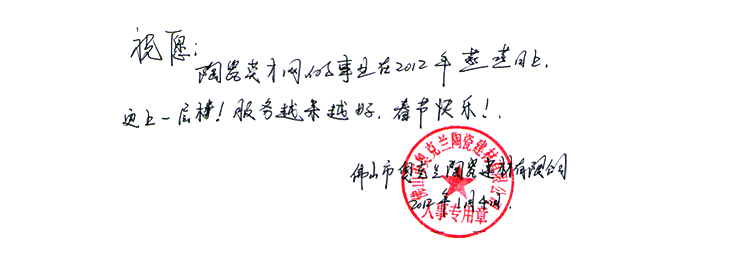 祝愿:
陶瓷英才网的事业在2012年蒸蒸日上,
更上一层楼!服务越来越好.春节快乐!.
佛山市奥克兰陶瓷建材有限公司
2012年1月4日.
佛山市奥克兰陶瓷建材有限公司
人事专用章